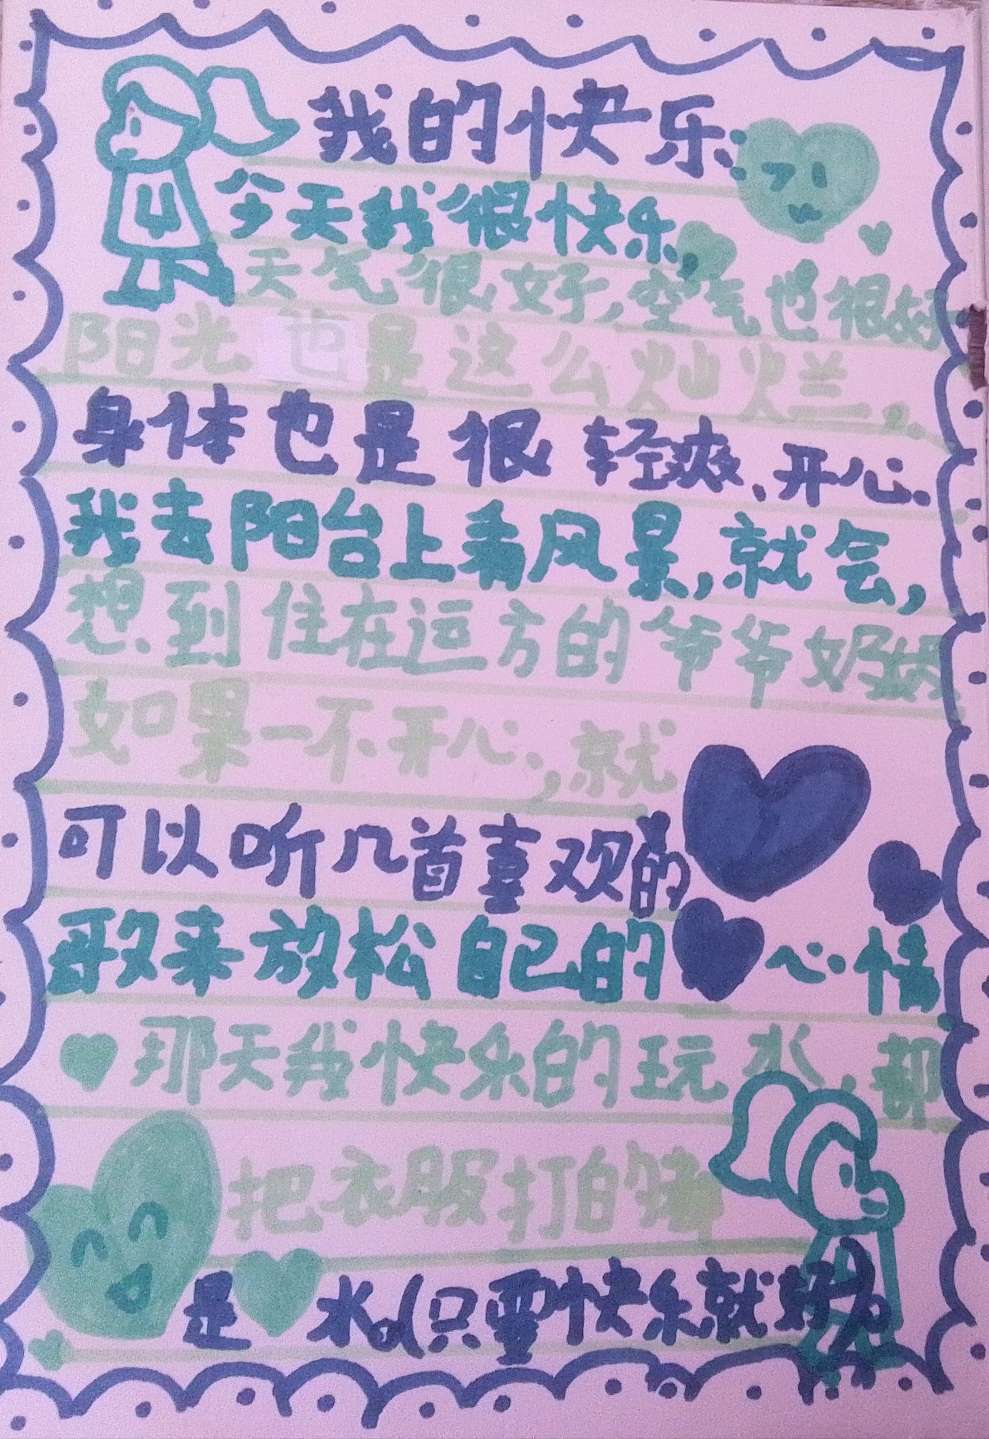 我的快乐:
今天我很快乐,
天气很好,空气也很好
阳光也是这么灿烂。
身体也是很轻爽、开心.
我去阳台上看风景,就会,
想到住在运方的爷爷奶奶
如果一不开心,就
可以听几首喜欢的
歌来放松自己的心情
那天我快乐的玩水,都
把衣服打的
是水。(只要快乐就好)。